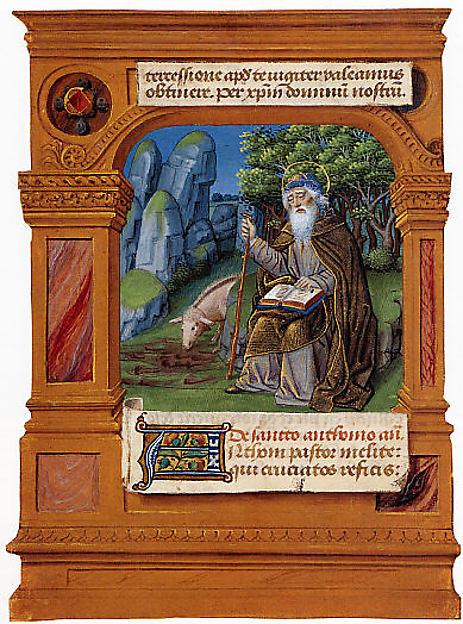 tercessione apd te iugiter valeamus
obtinere. Per xpm dominū nostrū.
De sancto anthonio añ.
Anthoni pastor inclite:
qui cruciatos reficis: